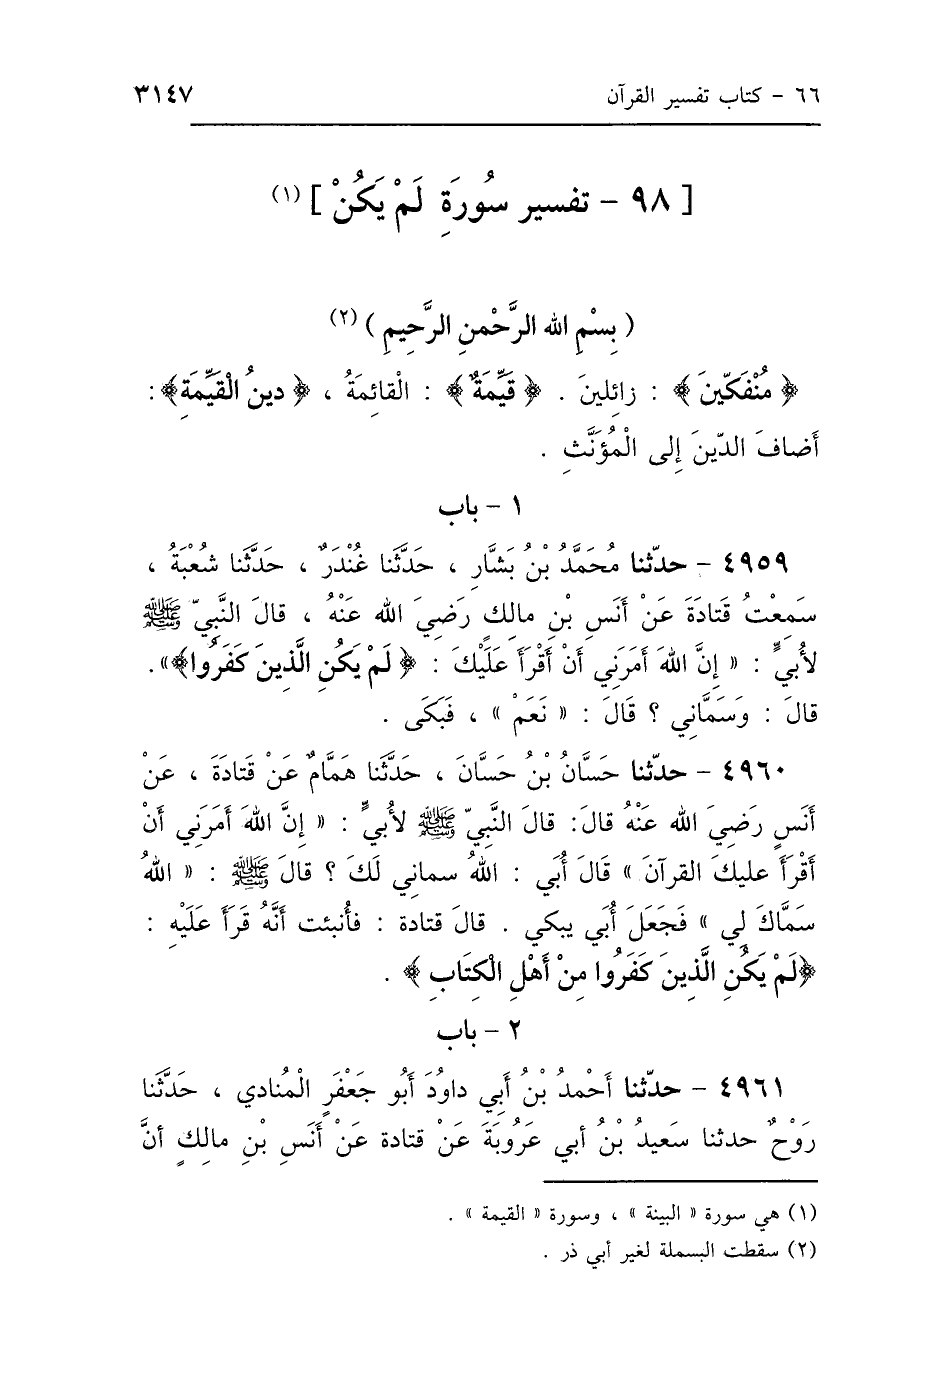 ٦٦ - كتاب تفسير القرآن ٣١٤٧
[ ٩٨ - تفسير سُورَةِ لَمْ يَكُنْ ] (١)
( بِسْمِ الله الرَّحْمنِ الرَّحِيمِ ) (٢)
﴿ مُنْفَكّينَ ﴾ : زائلينَ . ﴿ قَيِّمَةٌ ﴾ : الْقائِمَةُ ، ﴿ دينُ الْقَيِّمَةِ ﴾ :
أضافَ الدّينَ إلى الْمُؤَنَّثِ .
١ - باب
٤٩٥٩ - حدّثنا مُحَمَّدُ بْنُ بَشَّارٍ ، حَدَّثَنا غُنْدَرٌ ، حَدَّثَنا شُعْبَةُ ،
سَمِعْتُ قَتادَةَ عَنْ أنَسِ بْنِ مالِكٍ رَضِيَ الله عَنْهُ ، قالَ النَّبِيّ ﷺ
لأُبيٍّ : « إنَّ اللهَ أمَرَنِي أنْ أقْرَأَ عَلَيْكَ : ﴿ لَمْ يَكُنِ الَّذِينَ كَفَرُوا﴾» .
قالَ : وَسَمَّانِي ؟ قَالَ : « نَعَمْ » ، فَبَكَى .
٤٩٦٠ - حدّثنا حَسَّانُ بْنُ حَسَّانَ ، حَدَّثَنا هَمَّامٌ عَنْ قَتادَةَ ، عَنْ
أنَسٍ رَضِيَ الله عَنْهُ قالَ: قالَ النَّبِيّ ﷺ لأُبيٍّ : « إنَّ اللهَ أمَرَنِي أنْ
أقْرَأَ عليكَ القرآنَ » قَالَ أُبَي : اللهُ سماني لَكَ ؟ قالَ ﷺ : « اللهُ
سَمَّاكَ لِي » فَجَعَلَ أُبَي يبكي . قالَ قتادة : فأُنبئت أنَّهُ قَرَأَ عَلَيْهِ :
﴿لَمْ يَكُنِ الَّذِينَ كَفَرُوا مِنْ أَهْلِ الْكِتَابِ ﴾ .
٢ - باب
٤٩٦١ - حدّثنا أحْمدُ بْنُ أبِي داوُدَ أبُو جَعْفَرٍ الْمُنادِي ، حَدَّثَنا
رَوْحٌ حدثنا سَعِيدُ بْنُ أبي عَرُوبَةَ عَنْ قتادة عَنْ أنَسِ بْنِ مالِكٍ أنَّ
(١) هي سورة « البينة » ، وسورة « القيمة » .
(٢) سقطت البسملة لغير أبي ذر .